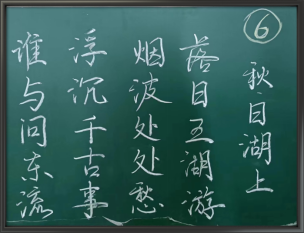 ⑥
秋日湖上
落日五湖游
烟波处处愁
浮沉千古事
谁与问东流